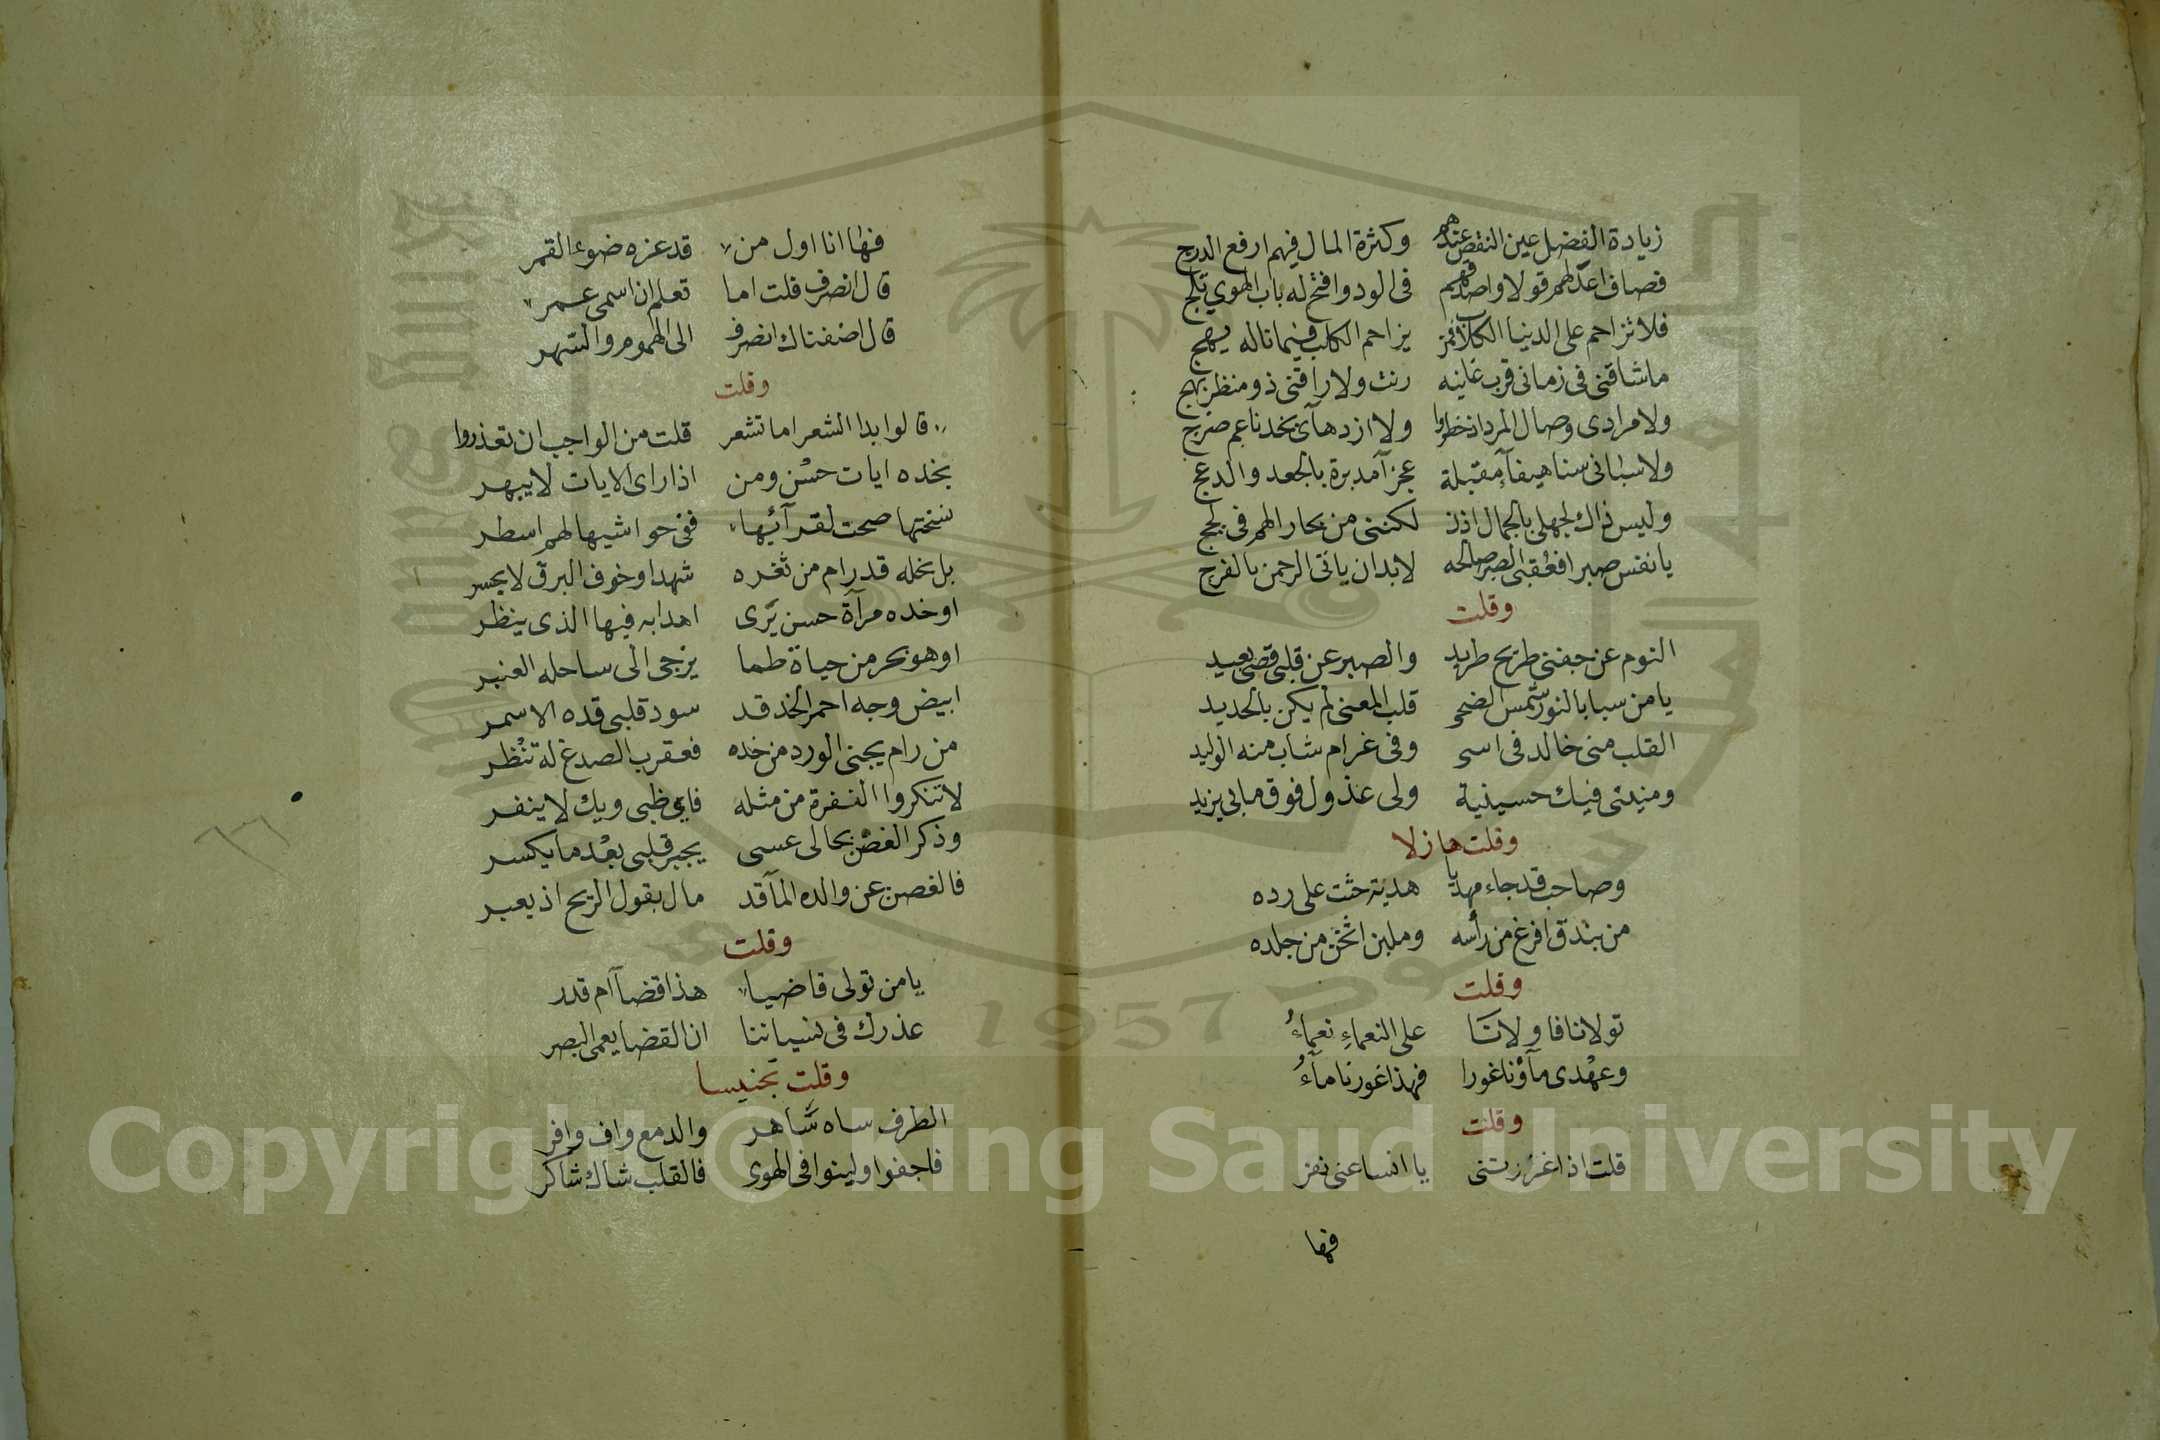 زيادة الفضل عين النقص عندهم وكثرة المال فيهم ارفع الدرج
فصاف اعداهم قولا واصدقهم فى الود وافتح له باب الهوي تلج
فلا تزاحم على الدنيا الكلاب فمن يزاحم الكلب فيما ناله يهج
ماشاقنى فى زمانى قرب غانية رنت ولا راقنى ذو منظر بهج
ولا مرادى وصال المرد اذ خطروا ولا ازدهآئ بخد ناعم ضرج
ولا سبانى سنا هيفآء مقبلة عجزآء مدبرة بالجعد والدعج
وليس ذاك لجهلى بالجمال اذن لكننى من بحار الهم فى لجج
يا نفس صبرا فعقبى الصبر صالحه لابد ان ياتى الرحمن بالفرج
وقلت
النوم عن جفنى طريح طريد والصبر عن قلبى قصى بعيد
يا من سبا بالنور شمس الضحى قلب المعنى لم يكن بالحديد
القلب منى خالد فى اسى وفى غرام شاب منه الوليد
ومنيتى فيك حسينية ولى عذول فوق مابى يزيد
وقلت هازلا
وصاحب قد جاء مهديا هدية حثت على رده
من بندق افرغ من رأسه وملبن اثخن من جلده
وقلت
تولانا فاولانا على النعماءِ نعماءُ
وعهدى مآؤنا غورا فهذا غورنا مآءُ
وقلت
قلت اذا غرزتنى يا انسا عنى نفر
فها
فها انا اول من قد غره ضوء القمر
قال انصرف قلت اما تعلم ان اسمى عمر
قال اضفناك انصرف الى الهموم والسهر
وقلت
قالوا بدا الشعر اما تشعر قلت من الواجب ان تعذروا
بخده ايات حسن ومن اذا راى الايات لايبهر
نسختها صحت لقرآئيها ففى حواشيها لهم اسطر
بل نخله قد رام من ثغره شهدا وخوف البرق لا يجسر
او خده مرآة حسن يَرى اهدابه فيها الذى ينظر
او هو بحر من حياة طما يزجى الى ساحله العنبر
ابيض وجه احمر الخد قد سود قلبى قده الاسمر
من رام يجنى الورد من خده فعقرب الصدغ له تنظر
لا تنكروا النفرة من مثله فاى ظبى ويك لاينفر
وذكر الغصن بحالى عسى يجبر قلبى بعد ما يكسر
فالغصن عن والده المآء قد مال بقول الريح اذ يعبر
وقلت
يا من تولى قاضيا هذا قضآ ام قدر
عذرك فى نسياننا ان القضا يعمى البصر
وقلت تجنيسا
الطرف ساه ساهر والدمع واف وافر
فاجفوا ولينوا فى الهوى فالقلب شاك شاكر
Copyright © King Saud University
1957